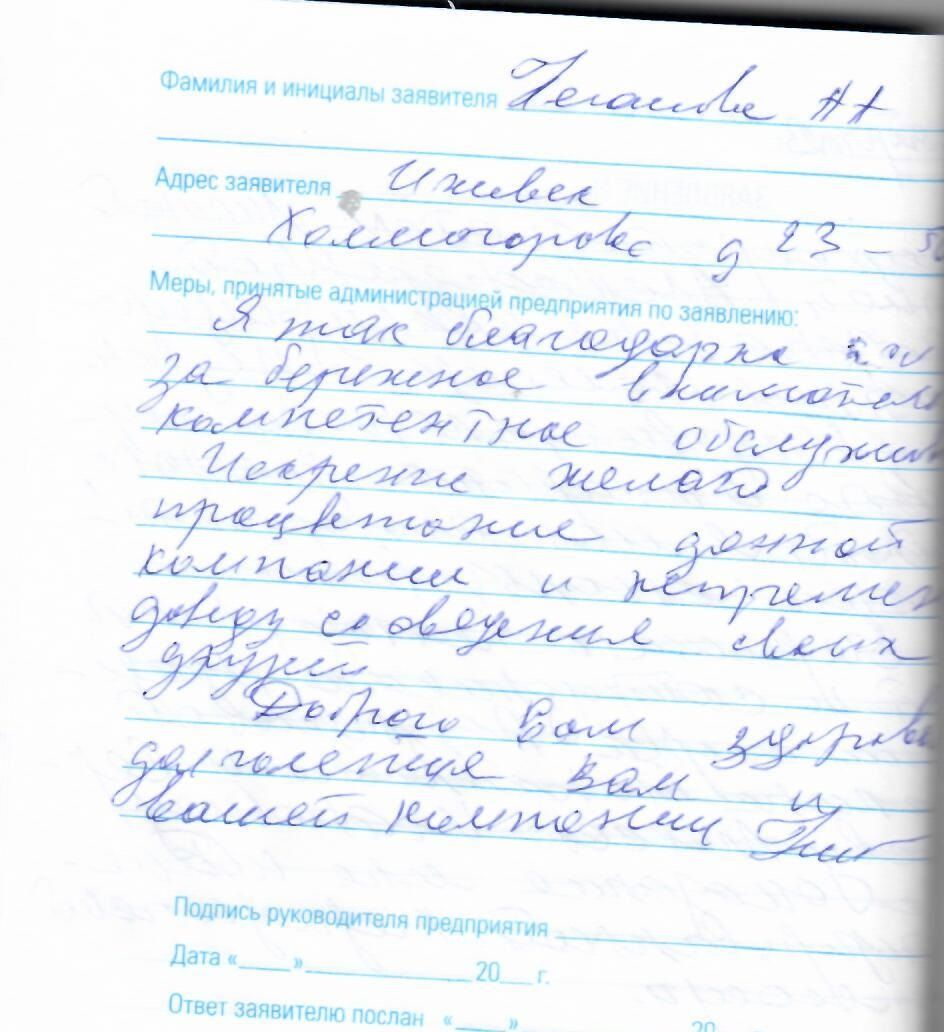 Фамилия и инициалы заявителя
Адрес заявителя Ижевск
Холмогорова д 23 -
Меры, принятые администрацией предприятия по заявлению:
Я так благодарна
за бережное внимател
компетентное обслужив
Искренне желаю
процветание данной
компании и непремен
доведу до сведения своих
друзей
Доброго Вам здоровь
долголетия Вам и
вашей компании
Подпись руководителя предприятия
Дата «____»____________20___г.
Ответ заявителю послан «____»____________20